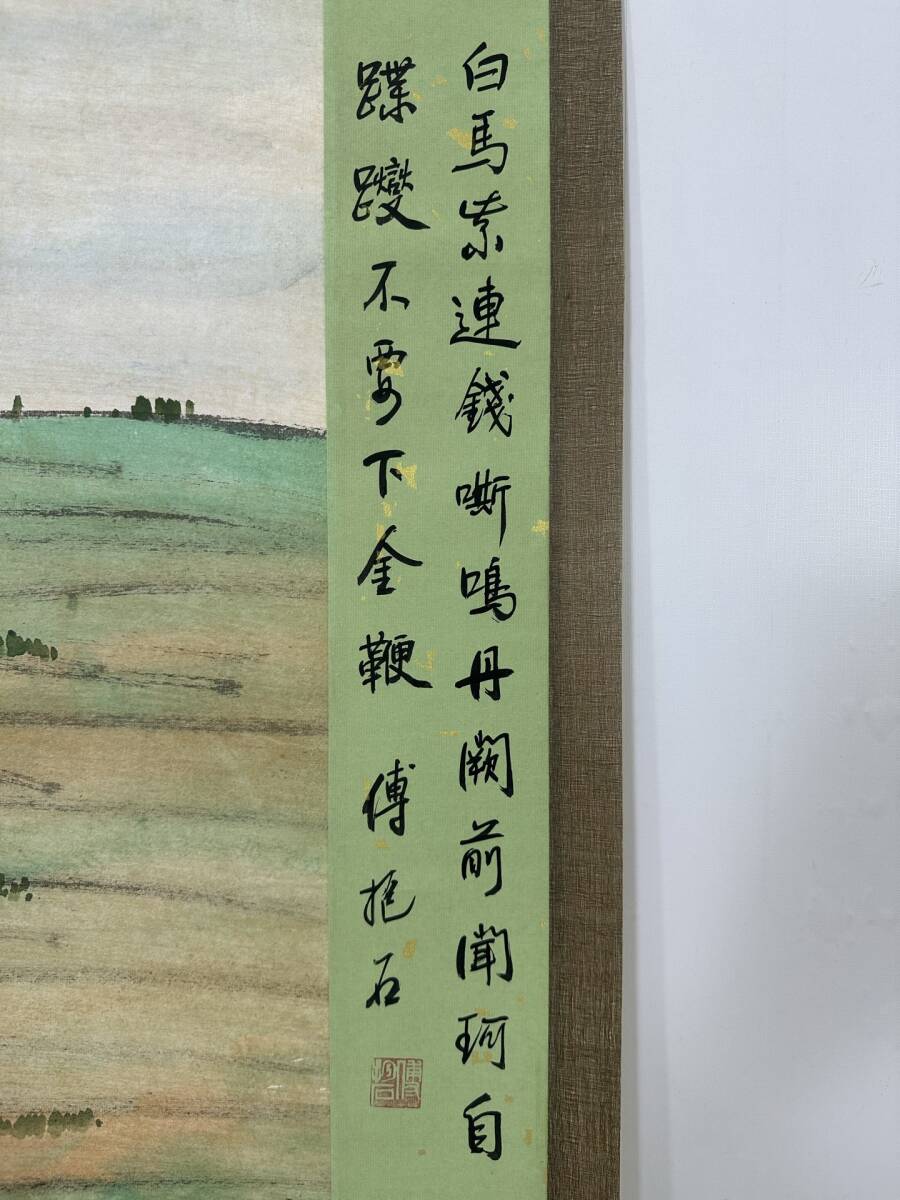 白馬紫連錢嘶鳴丹闕前聞珂自
蹀躞不要下金鞭 傅抱石